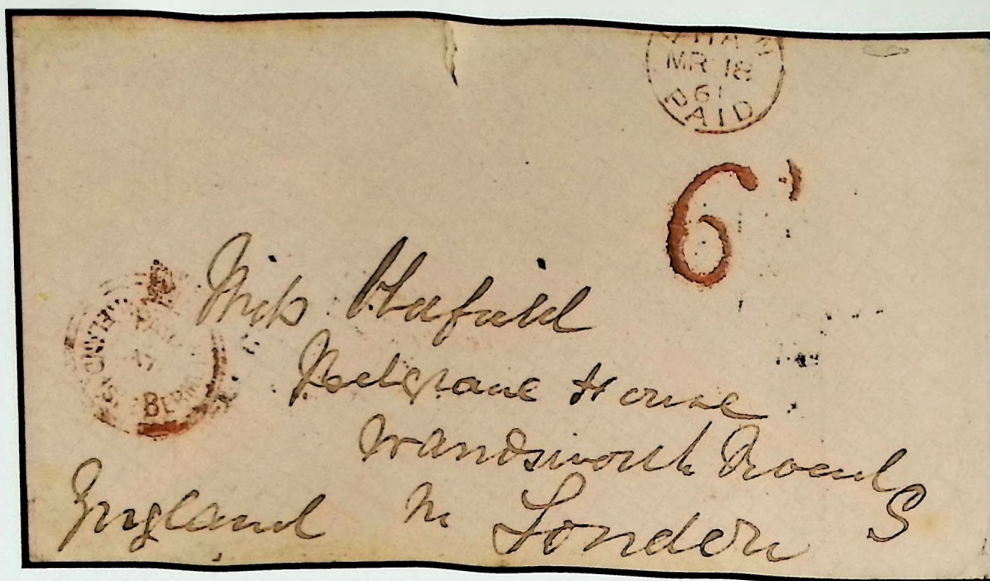 MR 18
61
PAID
6
Miss Hatfield
House
Wandsworth Road
England London S